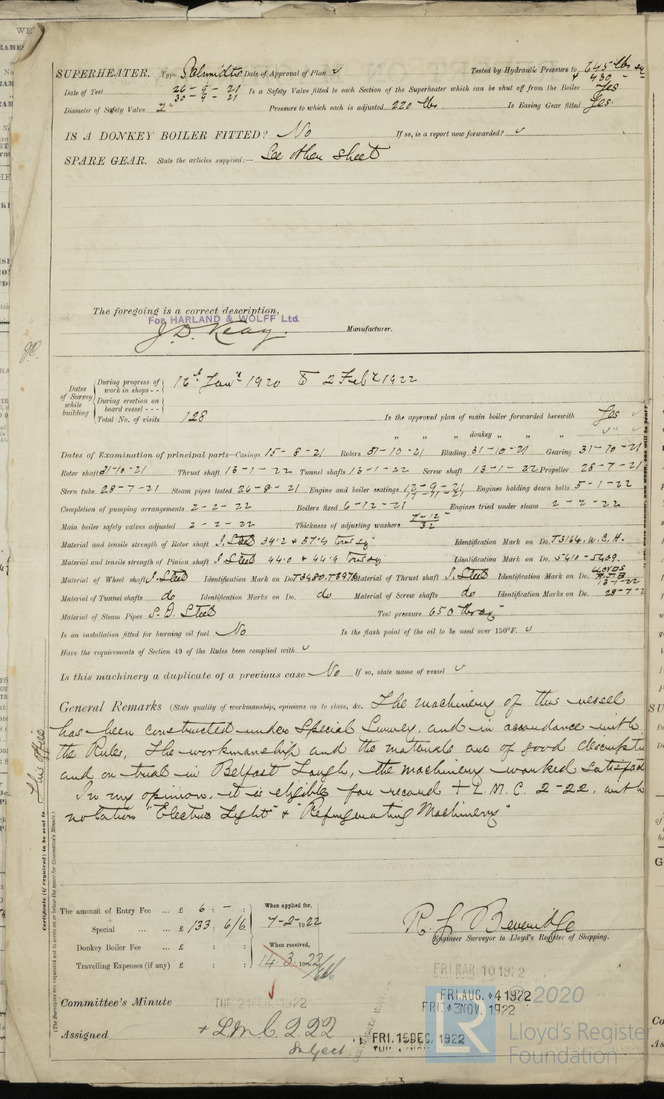 SUPERHEATER. Type Schmidts Date of Approval of Plan ✓ Tested by Hydraulic Pressure to 645 lbs
& 450
Date of Test 26-9-21 Is a Safety Valve fitted to each Section of the Superheater which can be shut off from the Boiler Yes
30-9-21
Diameter of Safety Valve 2" Pressure to which each is adjusted 220 lbs Is Easing Gear fitted Yes
IS A DONKEY BOILER FITTED? No If so, is a report now forwarded? ✓
SPARE GEAR. State the articles supplied:— See other sheet
The foregoing is a correct description,
For HARLAND & WOLFF Ltd.
Manufacturer.
Dates of Survey while building
During progress of work in shops - - 12th Jany 1920 to 2 Feby 1922
During erection on board vessel - - -
Total No. of visits 128 Is the approved plan of main boiler forwarded herewith Yes ✓
" " " donkey " " "
Dates of Examination of principal parts—Casings 15-8-21 Rotors 31-10-21 Blading 31-10-21 Gearing 31-10-21
Rotor shaft 31-10-21 Thrust shaft 13-1-22 Tunnel shafts 13-1-22 Screw shaft 13-1-22 Propeller 28-7-21
Stern tube 28-7-21 Steam pipes tested 26-8-21 Engine and boiler seatings 12-9-21 Engines holding down bolts 5-1-22
Completion of pumping arrangements 2-2-22 Boilers fixed 6-12-21 Engines tried under steam 2-2-22
Main boiler safety valves adjusted 2-2-22 Thickness of adjusting washers 7-12/32
Material and tensile strength of Rotor shaft S. Steel 34.2 & 37.4 tons sq Identification Mark on Do. T3164. W.C.H.
Material and tensile strength of Pinion shaft S. Steel 44.0 & 44.9 tons sq Identification Mark on Do. 5410-5409.
Material of Wheel shaft S. Steel Identification Mark on Do. T3480. T3976 Material of Thrust shaft S. Steel Identification Mark on Do. LLOYDS
13-1-22
Material of Tunnel shafts do Identification Marks on Do. do Material of Screw shafts do Identification Marks on Do. 28-7-2
Material of Steam Pipes S. D. Steel Test pressure 650 lbs sq"
Is an installation fitted for burning oil fuel No Is the flash point of the oil to be used over 150°F. ✓
Have the requirements of Section 49 of the Rules been complied with ✓
Is this machinery a duplicate of a previous case No If so, state name of vessel ✓
General Remarks (State quality of workmanship, opinions as to class, &c. The machinery of this vessel
has been constructed under Special Survey, and in accordance with
the Rules, The workmanship and the materials are of good descripti
and on trial in Belfast Lough, the machinery worked satisfact
In my opinion, it is eligible for record + L.M.C. 2-22, with
notation "Electric Light" & "Refrigerating Machinery"
Certificate (if required) to be sent to This office
(The Surveyors are requested not to write on or below the space for Committee's Minute.)
The amount of Entry Fee ... £ 6 : - : When applied for,
Special ... ... £ 133 : 6/6 : 7-2-1922
Donkey Boiler Fee ... £ : : When received,
Travelling Expenses (if any) £ : : 14.3.1922
R. L. Beveridge
Engineer Surveyor to Lloyd's Register of Shipping.
Committee's Minute TUE. 21 FEB. 1922
FRI. MAR 10 1922
FRI. AUG. 4 1922
FRI. 3 NOV. 1922
Assigned + LMC 2.22
Subject
FRI. 15 DEC. 1922
© 2020
LR
Lloyd's Register
Foundation